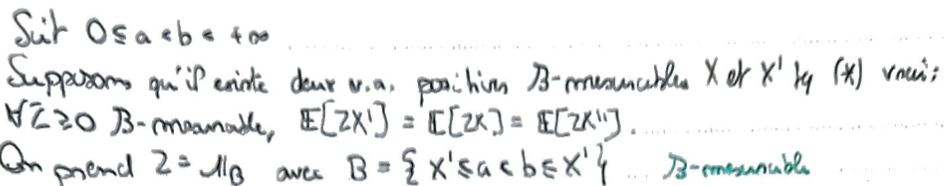 Soit 0 ≤ a < b < +∞
Supposons qu'il existe deux v.a. positives B-mesurables X et X' tq (*) vraie :
∀Z ≥ 0 B-mesurable, E[ZX'] = E[ZX] = E[ZX''].
On prend Z = 1_B avec B = { X' ≤ a < b ≤ X' } B-mesurable